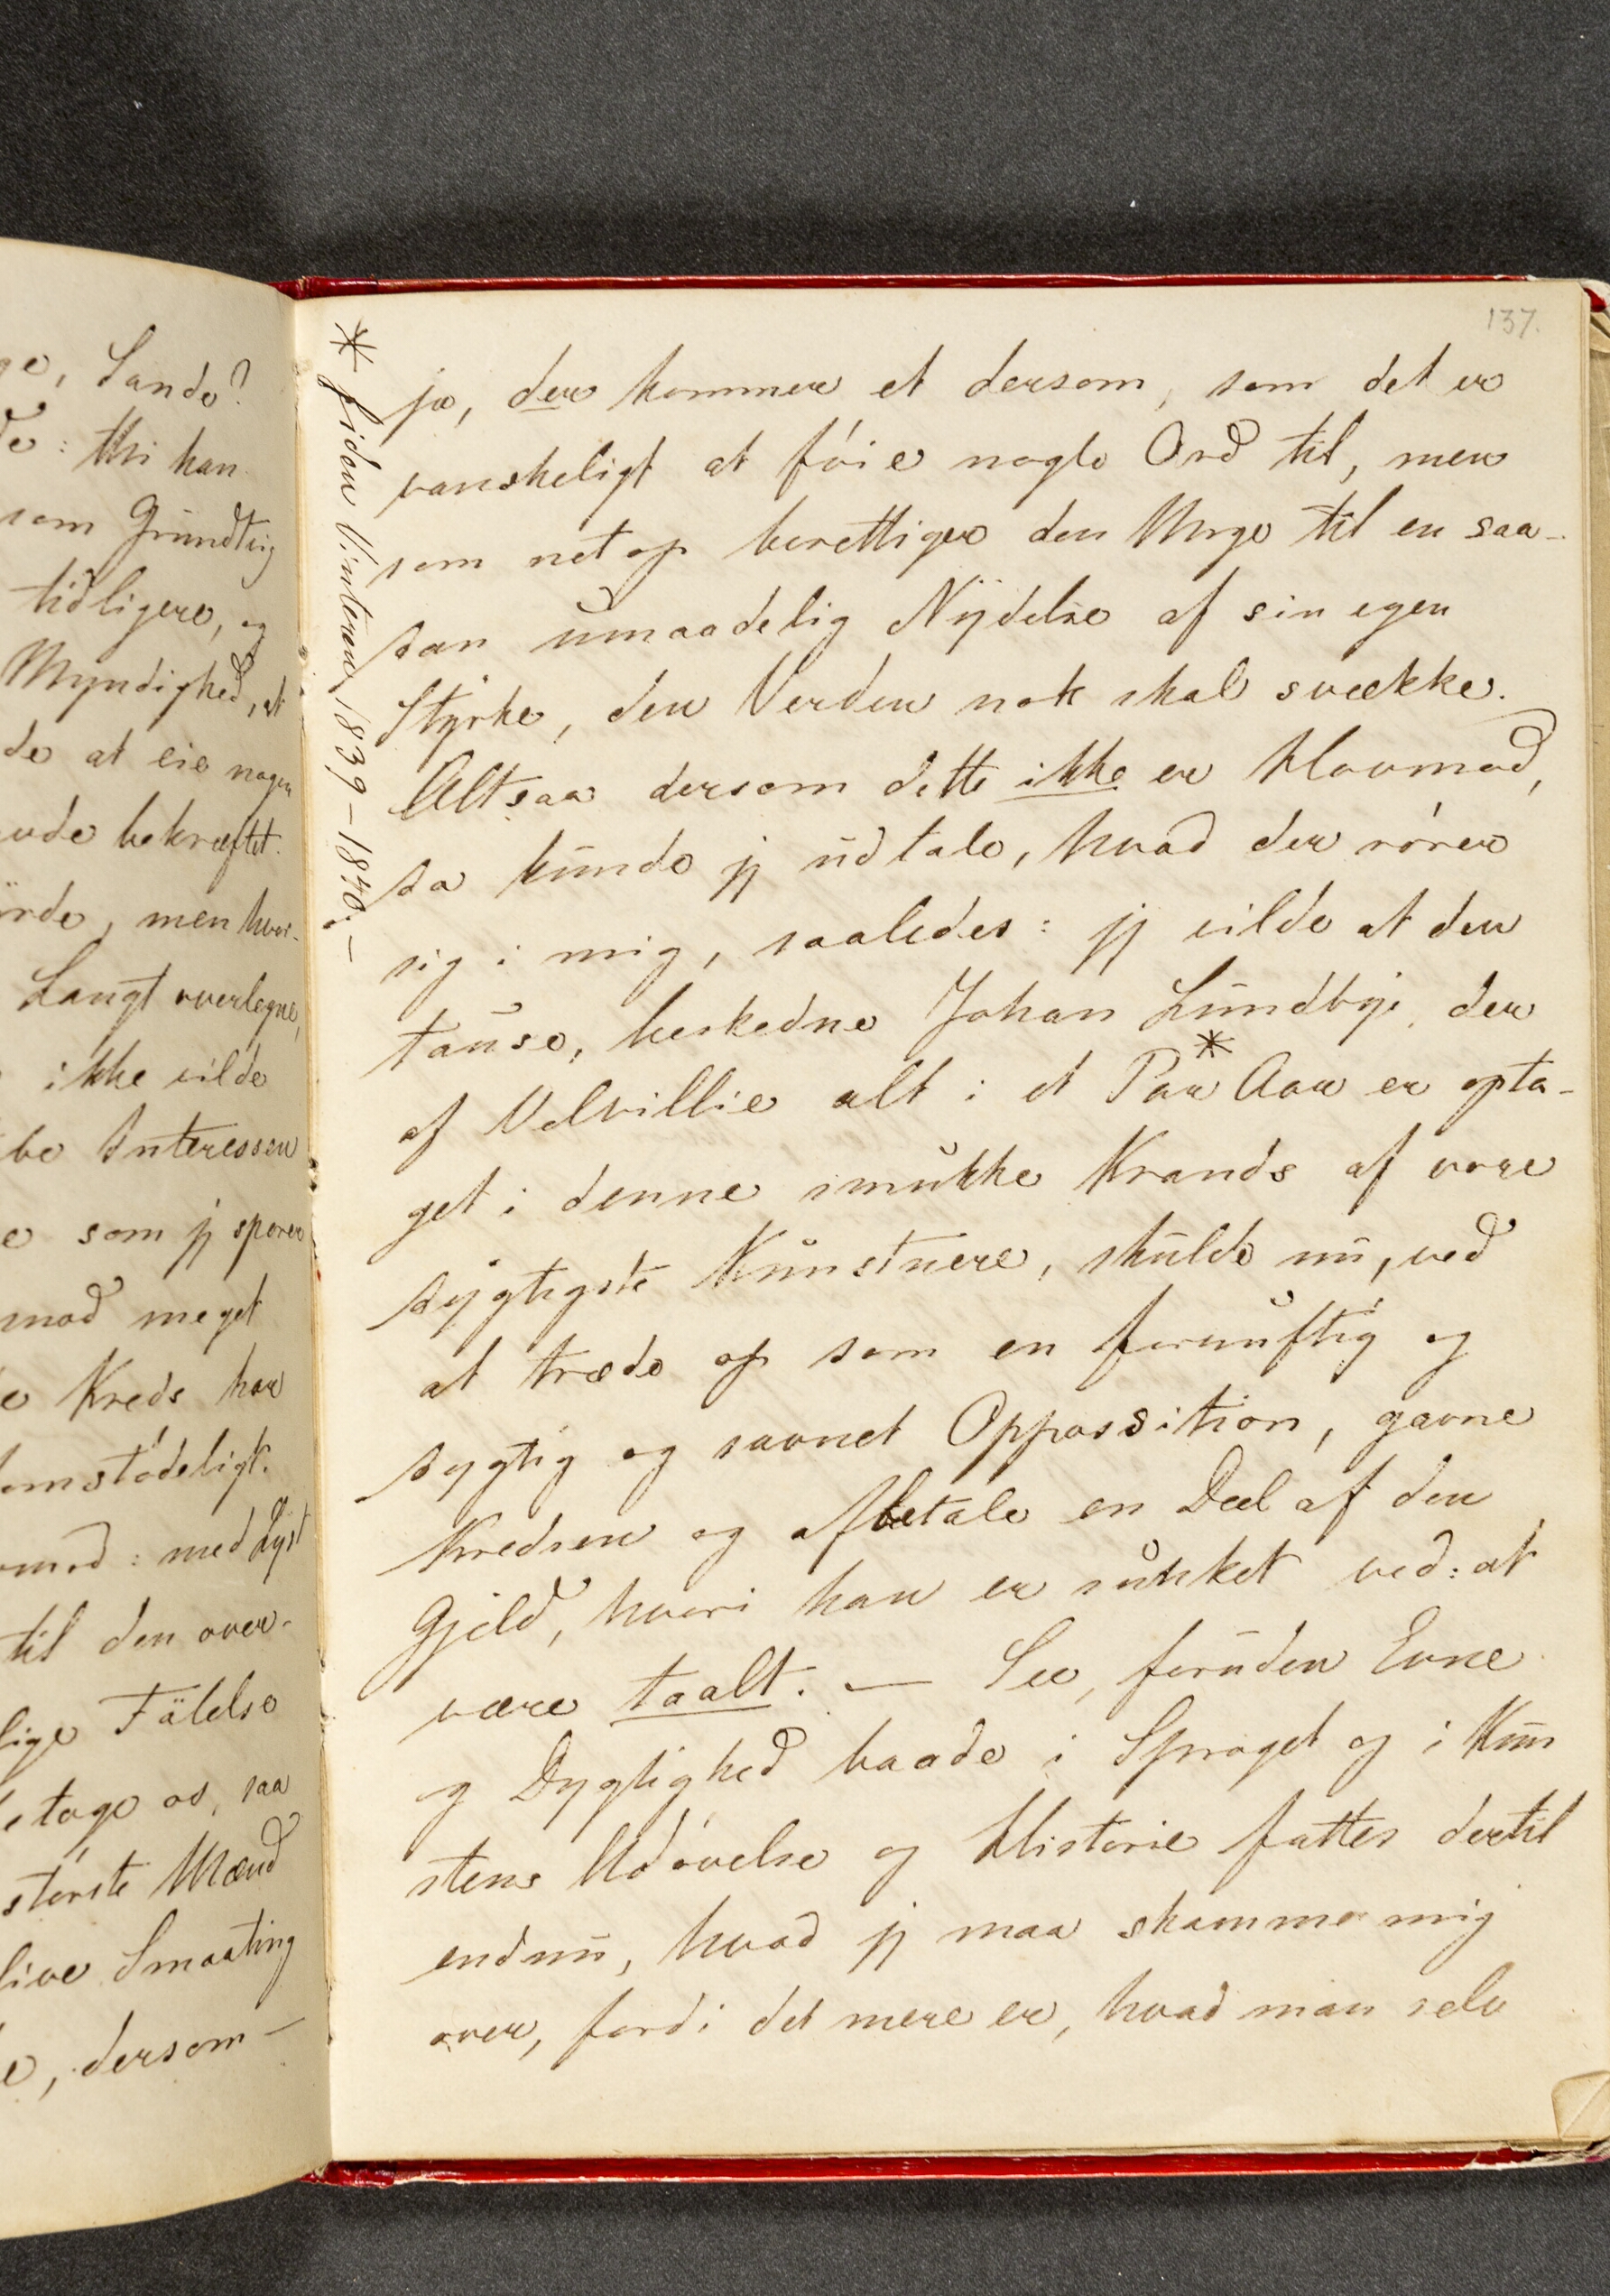 ge, Sande?
de: thi han
som Grundtvig
tidligere, og
Myndighed, at
de at eie nogen
vde bekræftet.
men hvor-
Langt overlegne,
ikke vilde
be Interessen
e som jeg sporer
mod meget
e Kreds har
omstødeligt.
mod: med Lyst
til den over-
lige Følelse
tage os, saa
største Mænd
live Smaating
e, dersom—
137.
* siden Vinteren 1839-1840.—
ja, der kommer et dersom, som det er
vanskeligt at føie nogle Ord til, men
som netop berettiger den Unge til en saa-
dan umaadelig Nydelse af sin egen
Styrke, den Verden nok skal svække.
Altsaa dersom dette ikke er Hovmod,
da kunde jeg udtale, hvad der rører
sig i mig, saaledes: jeg vilde at den
tause, beskedne Johan Lundbye, der
af Velvillie alt i et Par* Aar er opta-
get i denne smukke Krands af vore
dygtigste Kunstnere, skulde nu, ved
at træde op som en fornuftig og
dygtig og savnet Oppossition, gavne
Kredsen og afbetale en Deel af den
Gjeld, hvori han er sunket ved: at
være taalt. — See, foruden Evne
og Dygtighed baade i Sproget og i Kun
stens Udøvelse og Historie fattes dertil
endnu, hvad jeg maa skamme mig
over, fordi det mere er, hvad man selv